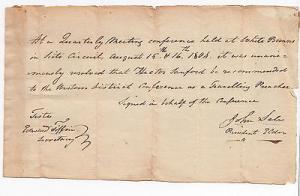 At a Quarterly Meeting conference held at White Browns
in Circuit, August 15th & 16th 18 it was unani-
mously resolved that Hector Sanford be recommended
to the Western District Conference as a Travelling Preacher
Signed in behalf of the Conference
Testes
Edward Tiffin
Secretary
John Sale
President Elder